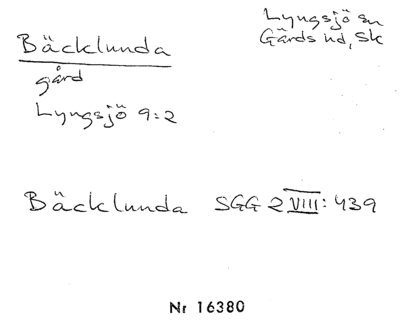 Lyngsjö sn
Bäcklunda
Gärds hd, Sk
gård
Lyngsjö 9:2
Bäcklunda SGG 2 VIII: 439
Nr 16380